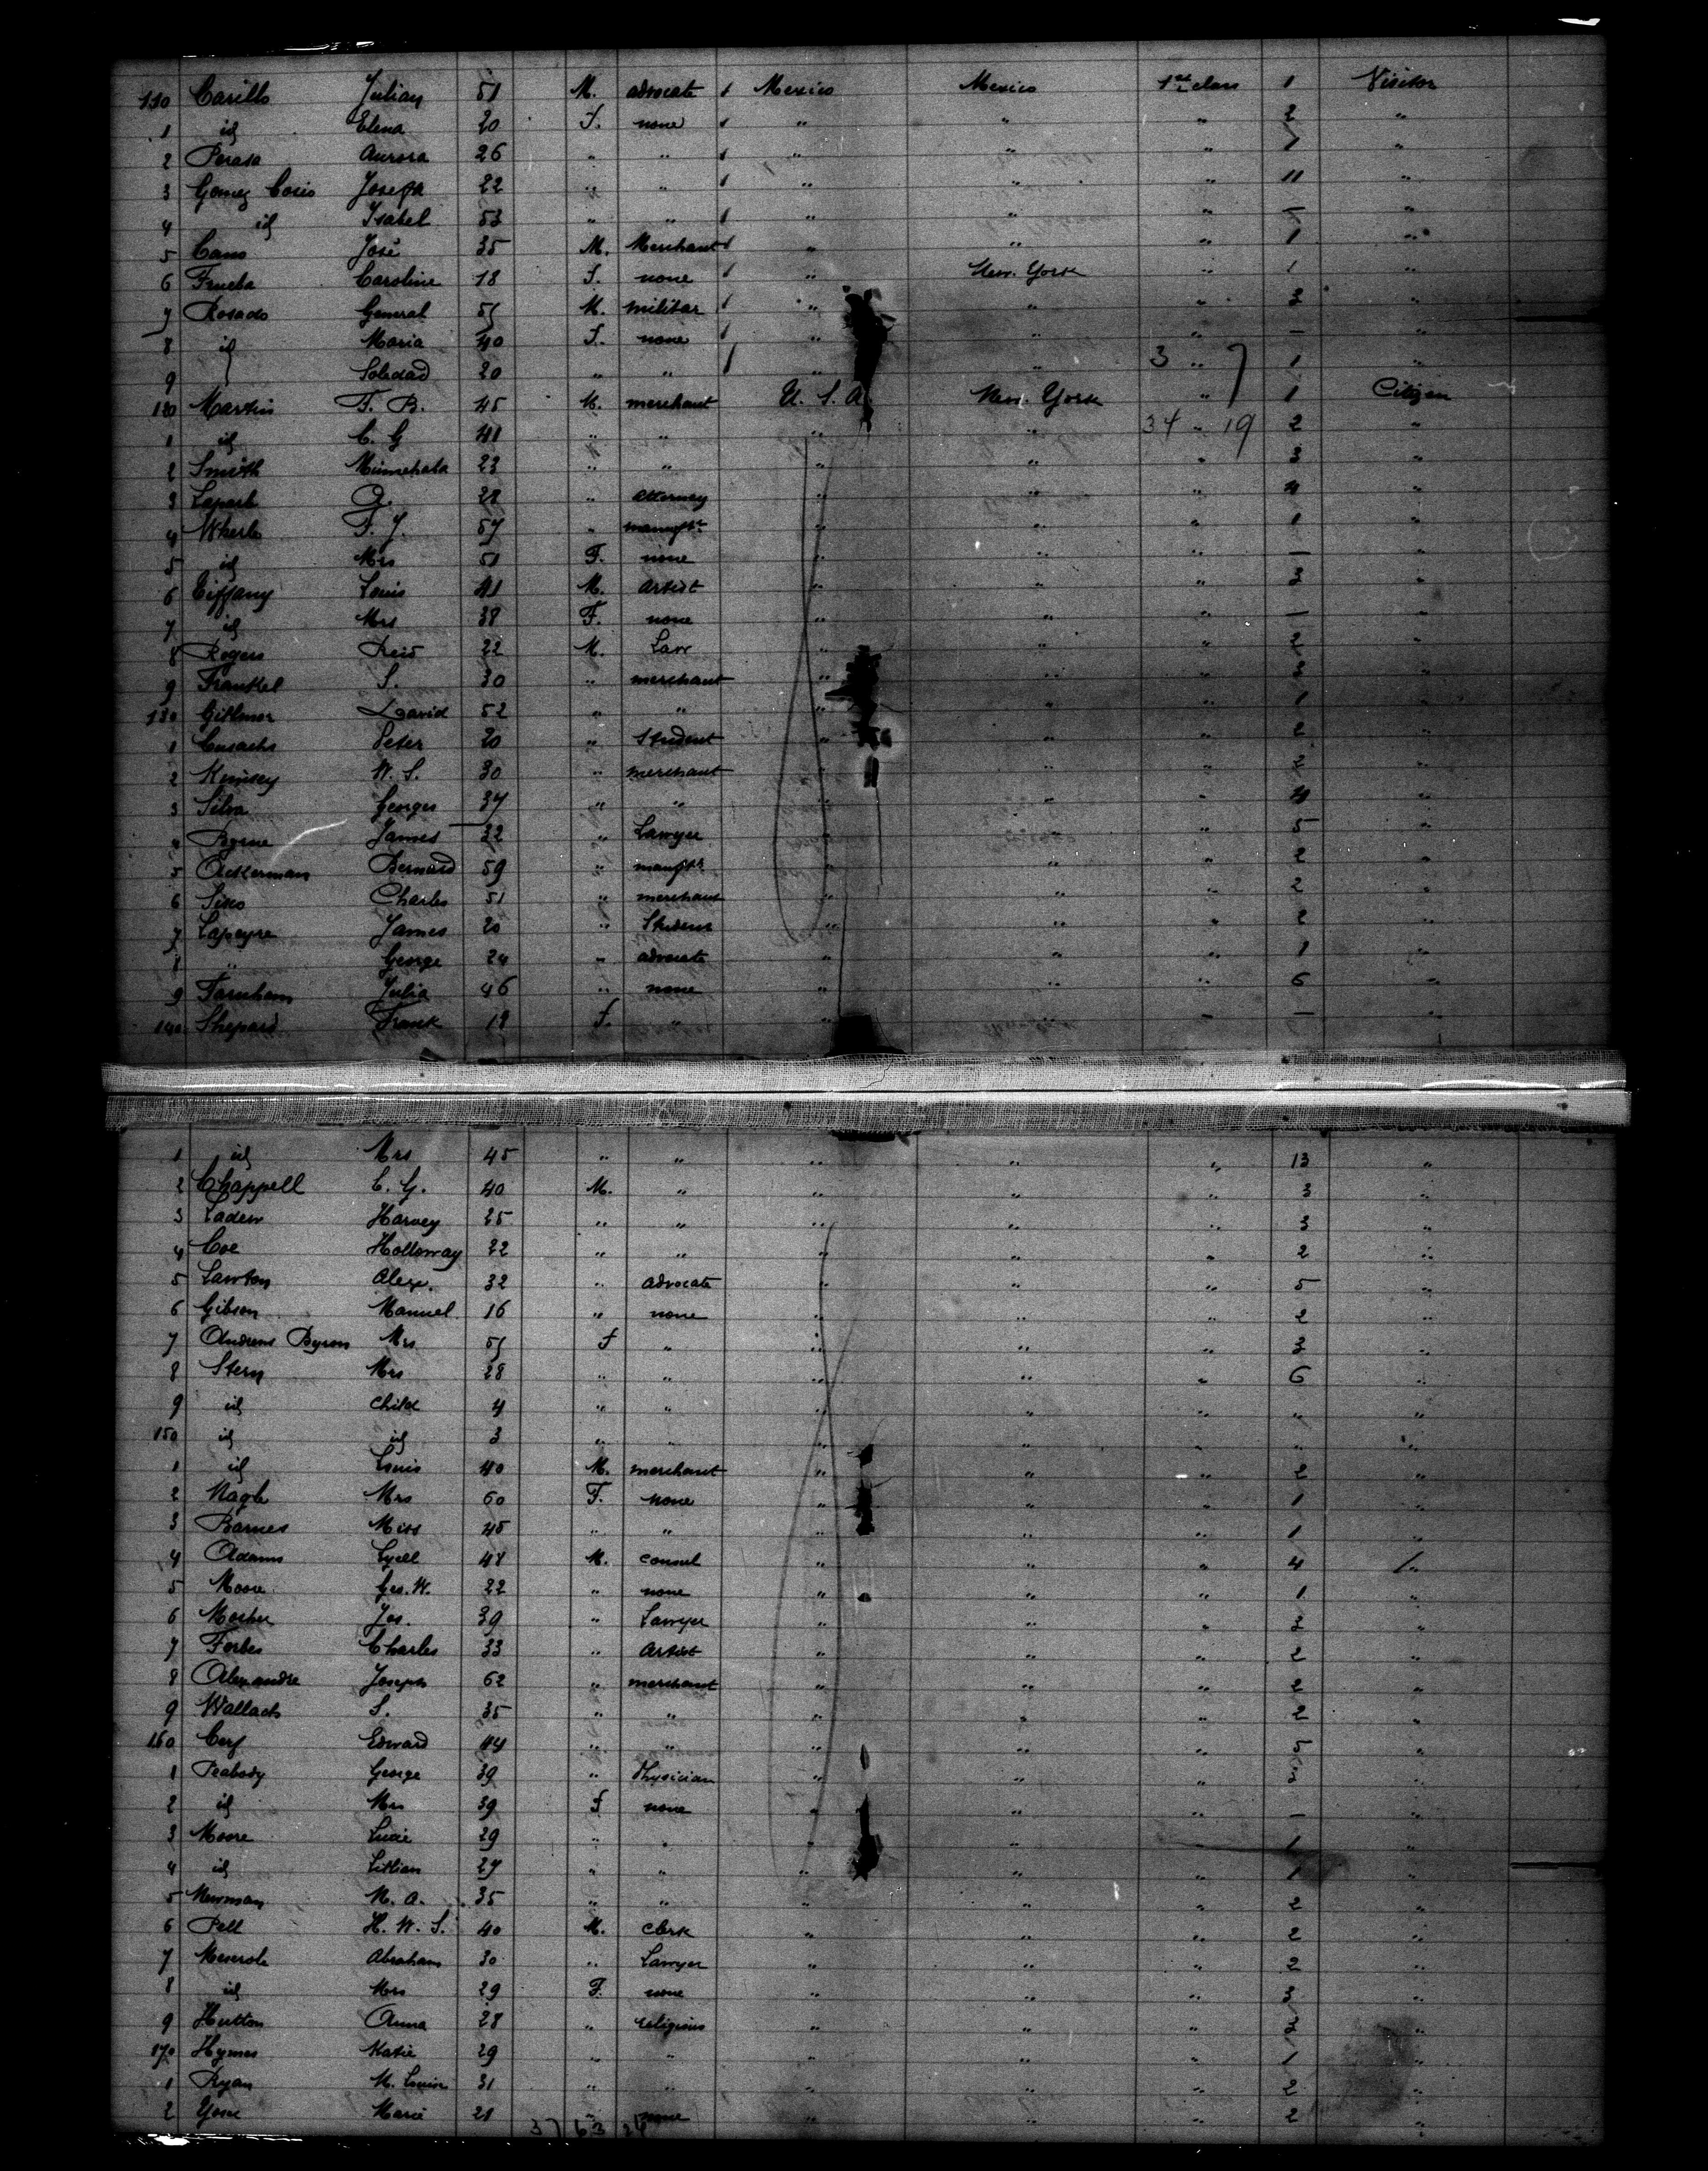 110 Carillo Julian 51 M. advocate 1 Mexico Mexico 1st class 1 Visitor
1 id Elena 20 F. none 1 " " " 2 "
2 Perasa Aurora 26 " " 1 " " " 1 "
3 Gomez Cosio Josefa 22 " " 1 " " " 11 "
4 id Isabel 53 " " 1 " " " — "
5 Cano José 35 M. Merchant 1 " " " 1 "
6 Trueba Caroline 18 F. none 1 " New. York " 1 "
7 Rosado General 55 M. militar 1 " " " 2 "
8 id Maria 40 F. none 1 " " " — "
9 Soledad 20 " " 1 " 3 " 7 1 "
120 Martin F. B. 45 M. merchant U. S. A. New. York " 1 Citizen
1 id C. G 41 " " " " 34 " 19 2 "
2 Smith Minnehaha 23 " " " " " 3 "
3 28 " attorney " " " 4 "
4 Wherle F. J. 57 " manuftr " " " 1 "
5 id Mrs 51 F. none " " " — "
6 Tiffany Louis 41 M. artist " " " 2 "
7 id Mrs 38 F. none " " " — "
8 Rogers Reid 22 M. Law " " " 2 "
9 Frankel S. 30 " merchant " " " 3 "
130 Gillmor David 52 " " " " " 1 "
1 Cusachs Peter 20 " Student " " " 2 "
2 Kinsey W. S. 30 " merchant " " " 2 "
3 Silva Georges 37 " " " " " 4 "
4 Byrne James 32 " Lawyer " " " 5 "
5 Ackerman Bernard 59 " manuftr " " " 2 "
6 Charles 51 " merchant " " " 2 "
7 Lapeyre James 20 " Student " " " 2 "
8 " George 24 " advocate " " " 1 "
9 Farnham Julia 46 " none " " " 6 "
140 Shepard Frank 18 F. " " " " — "
1 id Mrs 45 " " " " " 13 "
2 Chappell C. G. 40 M. " " " " 3 "
3 Ladew Harvey 25 " " " " " 3 "
4 Coe Holloway 22 " " " " " 2 "
5 Lawton Alex. 32 " advocate " " " 5 "
6 Gibson Manuel 16 " none " " " 2 "
7 Andrews Byron Mrs 55 F " " " " 3 "
8 Stern Mrs 28 " " " " " 6 "
9 id child 4 " " " " " " "
150 id id 3 " " " " " " "
1 id Louis 40 M. merchant " " " 2 "
2 Nagle Mrs 60 F. none " " " 1 "
3 Barnes Miss 45 " " " " " 1 "
4 Adams Lyell 48 M. consul " " " 4 "
5 Moore Geo. W. 22 " none " " " 1 "
6 Mosher Jos. 39 " Lawyer " " " 3 "
7 Forbes Charles 33 " artist " " " 2 "
8 Alexandre Joseph 62 " merchant " " " 2 "
9 Wallach S. 35 " " " " " 2 "
160 Cerf Edward 44 " " " " " 5 "
1 Peabody George 39 " Physician " " " "
2 id Mrs 39 F. none " " " — "
3 Moore Lucie 29 " " " " " 1 "
4 id Lillian 27 " " " " " 1 "
5 Newman M. A. 35 " " " " " 2 "
6 Pell H. W. S. 40 M. clerk " " " 2 "
7 Meserole Abraham 30 " Lawyer " " " 2 "
8 id Mrs 29 F. none " " " 3 "
9 Hutton Anna 28 " religious " " " 2 "
170 Hymes Katie 29 " " " " " 1 "
1 Ryan M. Louise 31 " " " " " 2 "
2 Marie 21 " none " " " 2 "
37 63 24